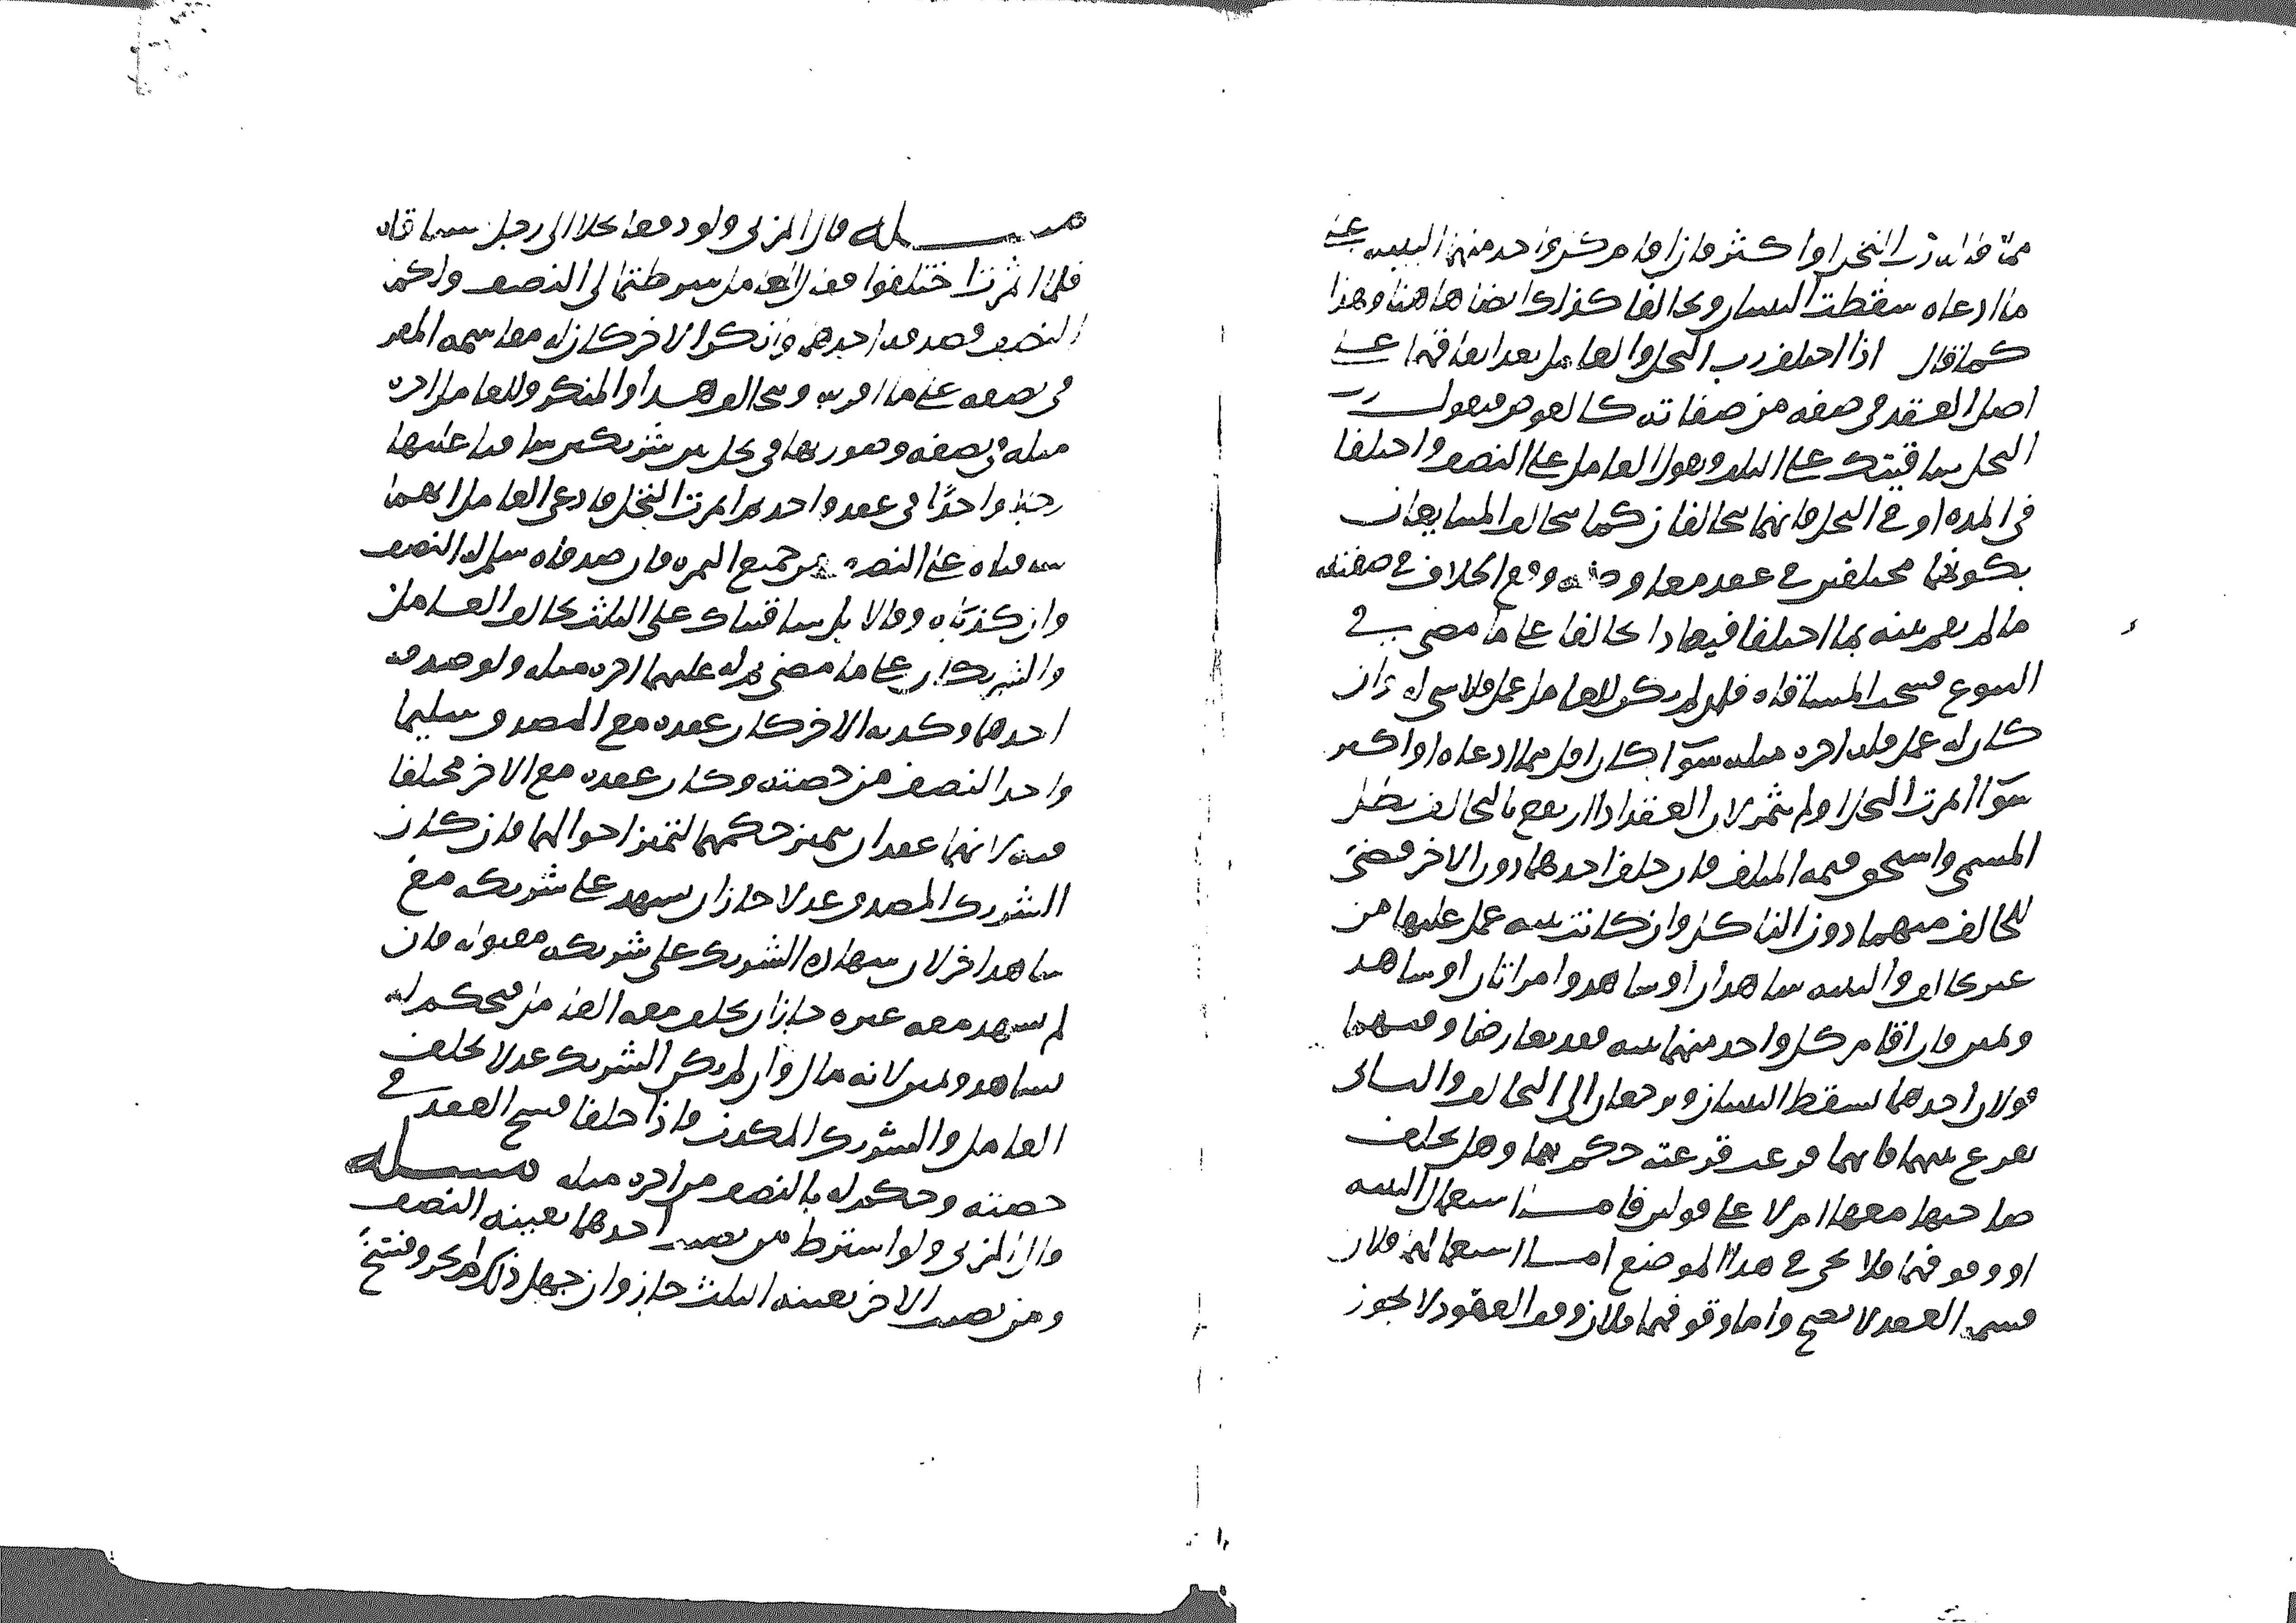 مما قال رب النخل او اكثر فان اقام كل واحد منهما البينة على
ما ادعاه سقطت البينتان وتحالفا كذلك ايضا هاهنا وهذا
كما قال اذا اختلف رب النخل والعامل بعد اتفاقهما على
اصل العقد في صفة من صفاته كالعوض فيقول رب
النخل ساقيتك على الثلث ويقول العامل على النصف واختلفا
في المدة او في النخل فانهما يتحالفان كما يتحالف المتبايعان
بكونهما مختلفين في عقد معاوضة وقع الخلاف في صفته
ما لم يقم بينة بما اختلفا فيه فاذا تحالفا على ما مضى في
البيوع فسخت المساقاة فلو لم يكن للعامل عمل فلا شي له وان
كان له عمل فله اجرة مثله سوا كان اقل مما ادعاه او اكثر
سوا اثمرت النخل او لم تثمر لان العقد اذا ارتفع بالتحالف بطل
المسمى واستحق قيمة المتلف فان حلف احدهما دون الاخر قضي
للحالف منهما دون الناكل وان كانت بينة عمل عليها من
غير تحالف والبينة شاهدان او شاهد وامراتان او شاهد
ويمين فان اقام كل واحد منهما بينة فقد تعارضتا وفيهما
قولان احدهما يسقط البينتان ويرجعان الى التحالف والثاني
يقرع بينهما فايهما قرعت قرعته حكم بها وهل يحلف
صاحبها معها ام لا على قولين فاما استعمال البينة
او وقوفهما فلا يجي في هذا الموضع اما استعمالهما فلان
قسمة العقد لا تصح واما وقوفهما فلان وقف العقود لا يجوز
مسله قال المزني ولو دفعا نخلا الى رجل مساقاة
فلما اثمرت اختلفوا فقال العامل شرطتما لي النصف ولكما
النصف فصدقه احدهما وانكر الاخر كان له مقاسمة المقر
في نصفه على ما اقر به وتحالف هو والمنكر وللعامل اجرة
مثله في نصفه وصورتها في نخل بين شريكين ساقيا عليها
رجلا واحدا في عقد واحد ثم اثمرت النخل فادعى العامل انهما
ساقياه على النصف من جميع الثمرة فان صدقاه سلم له النصف
وان كذباه وقالا بل ساقيناك على الثلث تحالف العامل
والشريكان على ما مضى ثم له عليهما اجرة مثله ولو صدقه
احدهما وكذبه الاخر كان عقده مع المصدق سليما
واخذ النصف من حصته وكان عقده مع الاخر مختلفا
فيه لانهما عقدان يتميز حكمهما لتميز احوالهما فان كان
الشريك المصدق عدلا جاز ان يشهد على شريكه مع
شاهد اخر لان شهادة الشريك على شريكه مقبولة فان
لم يشهد معه غيره جاز ان يحلف معه العامل فيحكم له
بشاهد ويمين لانه مال وان لم يكن الشريك عدلا يحلف
العامل والشريك المكذب فاذا حلفا فسخ العقد في
حصته وحكم له بالنصف من اجرة مثله مسله
قال المزني ولو اشترط من نصيب احدهما بعينه النصف
ومن نصيب الاخر بعينه الثلث جاز وان جهل ذلك لم يجز وفسخ